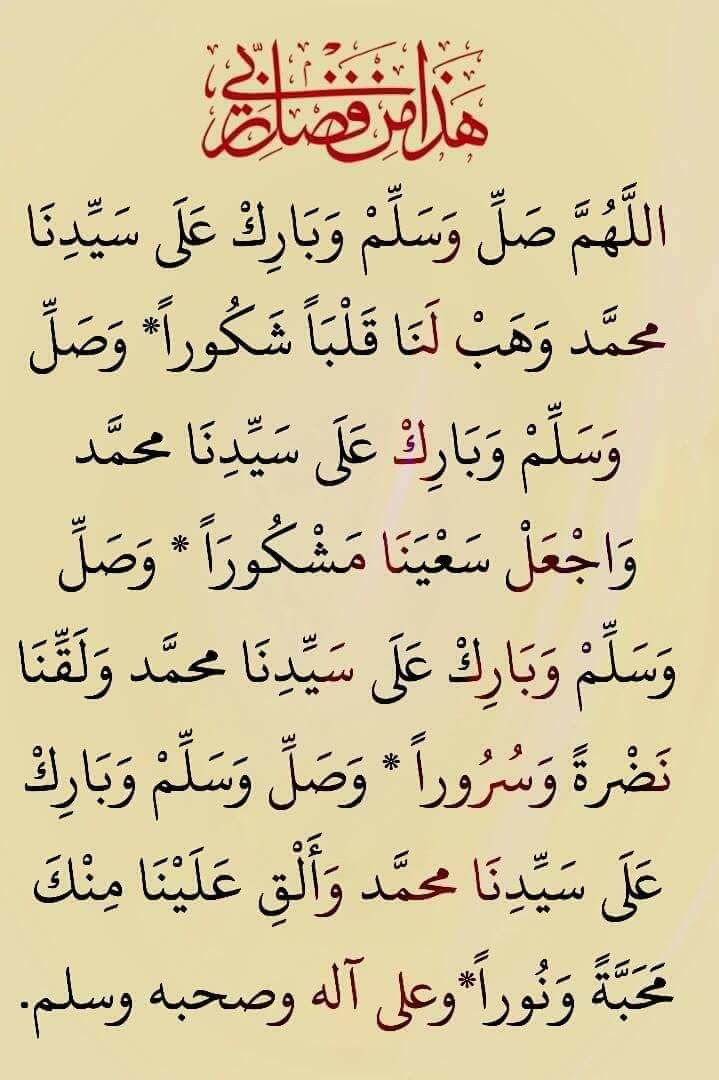 هَذَا مِن فَضْلِ رَبِّي
اللَّهُمَّ صَلِّ وَسَلِّمْ وَبَارِكْ عَلَى سَيِّدِنَا
محمَّد وَهَبْ لَنَا قَلْبَاً شَكُوراً* وَصَلِّ
وَسَلِّمْ وَبَارِكْ عَلَى سَيِّدِنَا محمَّد
وَاجْعَلْ سَعْيَنَا مَشْكُورَاً * وَصَلِّ
وَسَلِّمْ وَبَارِكْ عَلَى سَيِّدِنَا محمَّد وَلَقِّنَا
نَضْرةً وَسُرُوراً * وَصَلِّ وَسَلِّمْ وَبَارِكْ
عَلَى سَيِّدِنَا محمَّد وَأَلْقِ عَلَيْنَا مِنْكَ
مَحَبَّةً وَنُوراً*وعلى آله وصحبه وسلم.